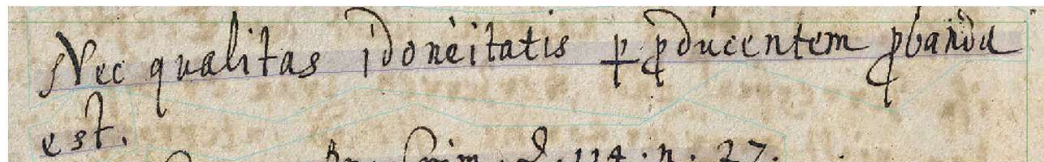 Nec qualitas idoneitatis ꝑ ꝓducentem ꝓbanda
est.